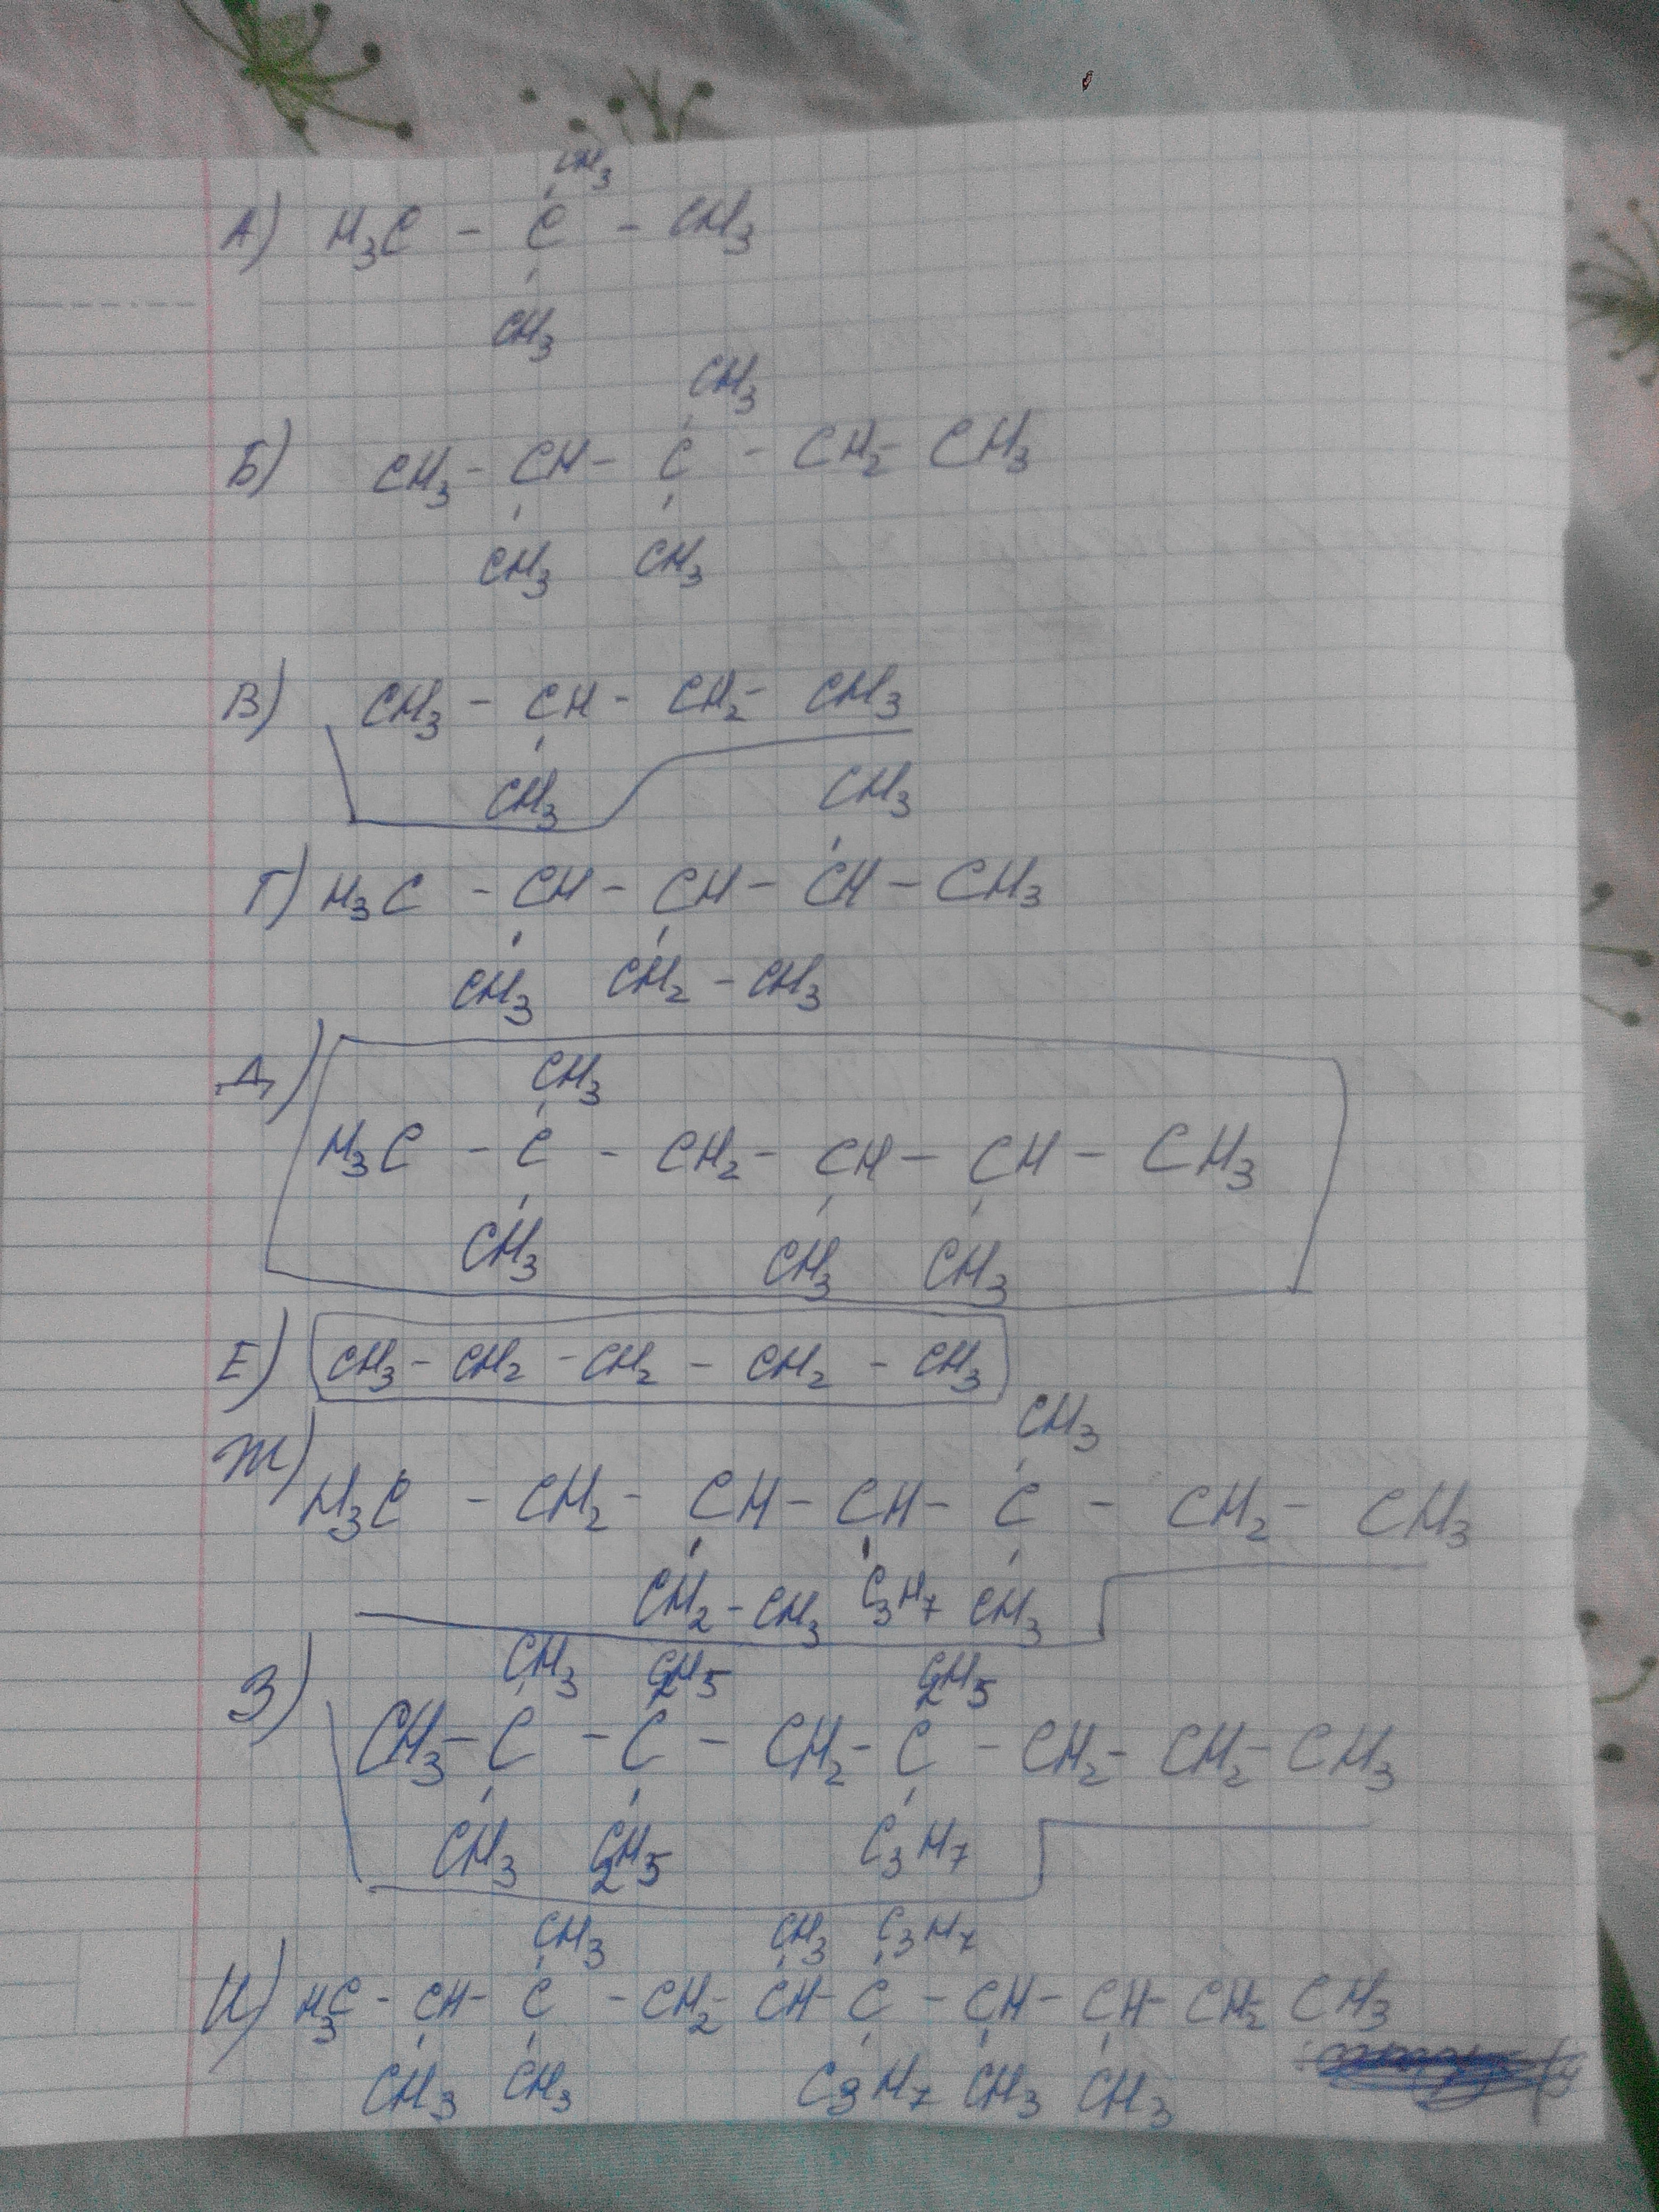 CH3
А) H3C - C - CH3
CH3
CH3
Б) CH3 - CH - C - CH2 - CH3
CH3 CH3
В) CH3 - CH - CH2 - CH3
CH3
CH3
Г) H3C - CH - CH - CH - CH3
CH3 CH2 - CH3
CH3
Д) H3C - C - CH2 - CH - CH - CH3
CH3 CH3 CH3
Е) CH3 - CH2 - CH2 - CH2 - CH3
CH3
Ж) H3C - CH2 - CH - CH - C - CH2 - CH3
CH2 - CH3 C3H7 CH3
CH3 C2H5 C2H5
З) CH3 - C - C - CH2 - C - CH2 - CH2 - CH3
CH3 C2H5 C3H7
CH3 CH3 C3H7
И) H3C - CH - C - CH2 CH - C - CH - CH - CH2 CH3
CH3 CH3 C3H7 CH3 CH3